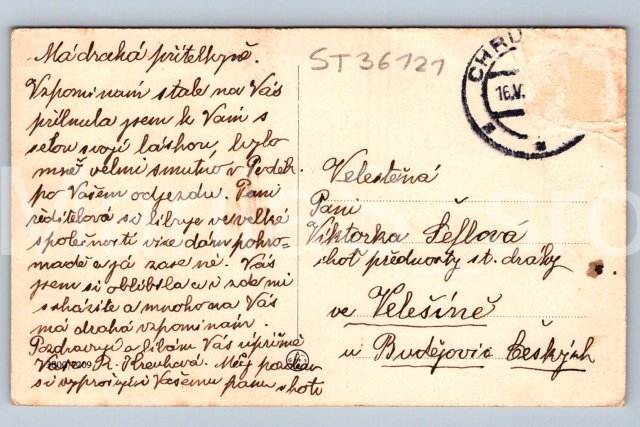 Má drahá přítelkyně.
Vzpomínám stale na Vás
přilnula jsem k Vám s
celou svojí láskou, bylo
mně velmi smutno v
po Vašem odjezdu. Paní
ředitelová si libuje ve velké
společnosti více dám pohro-
madě a já zase né. Vás
jsem si oblíbila a i zde mi
scházíte a mnoho na Vás
má drahá vzpomínám.
Pozdravuji a líbám Vás upřímně
Vaše R. Můj pozdrav
si vyprošuji Vašemu panu choti
ST 36121
CHRU
16.V.
Velectěná
Paní
Viktorka Šeflová
choť přednosty st. dráhy
ve Velešíně
u Budějovic Českých